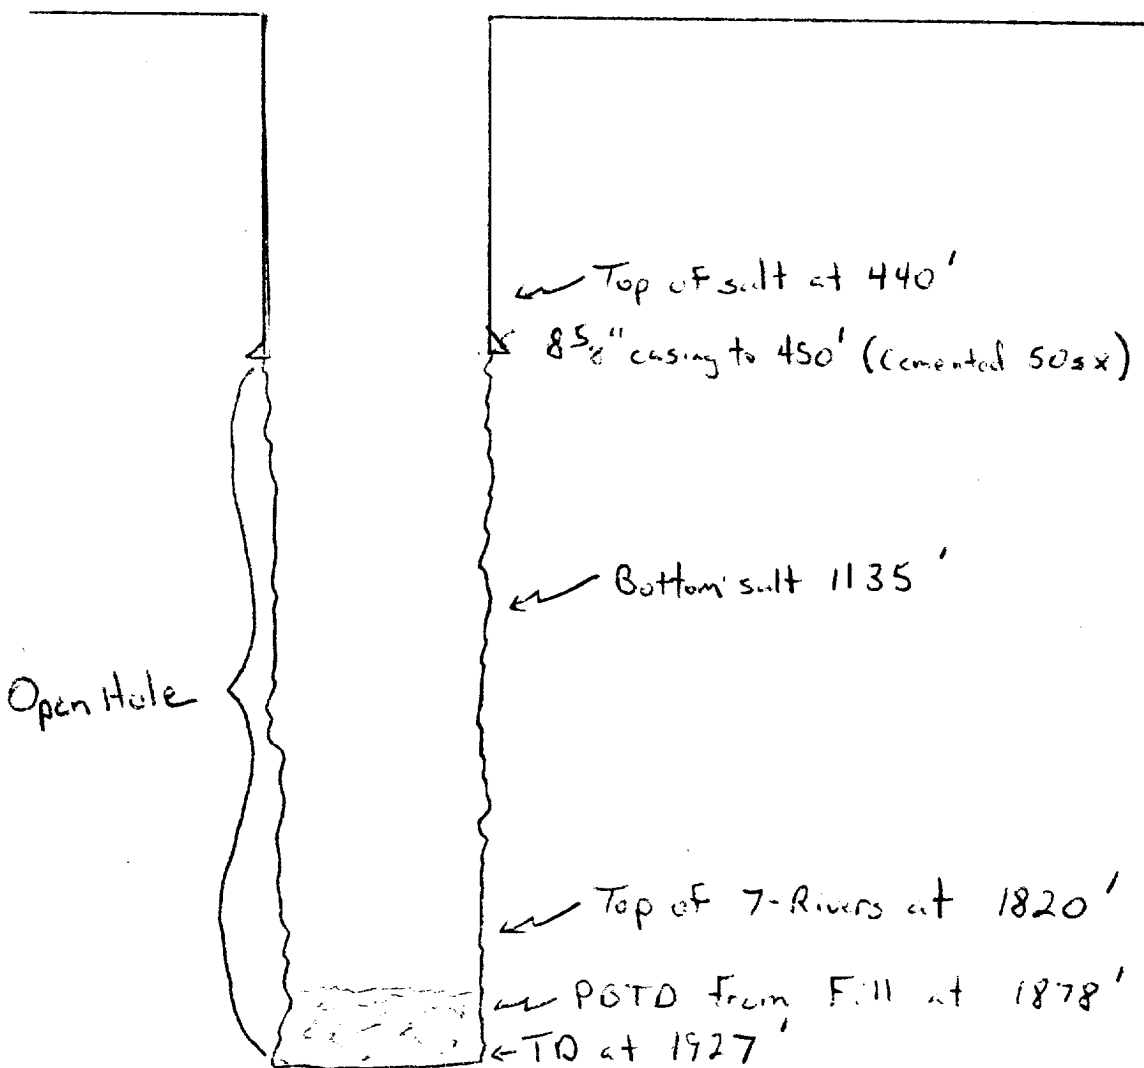 Top of salt at 440'
8 5/8" casing to 450' (cemented 50sx)
Bottom salt 1135'
Open Hole
Top of 7-Rivers at 1820'
PBTD from Fill at 1878'
TD at 1927'